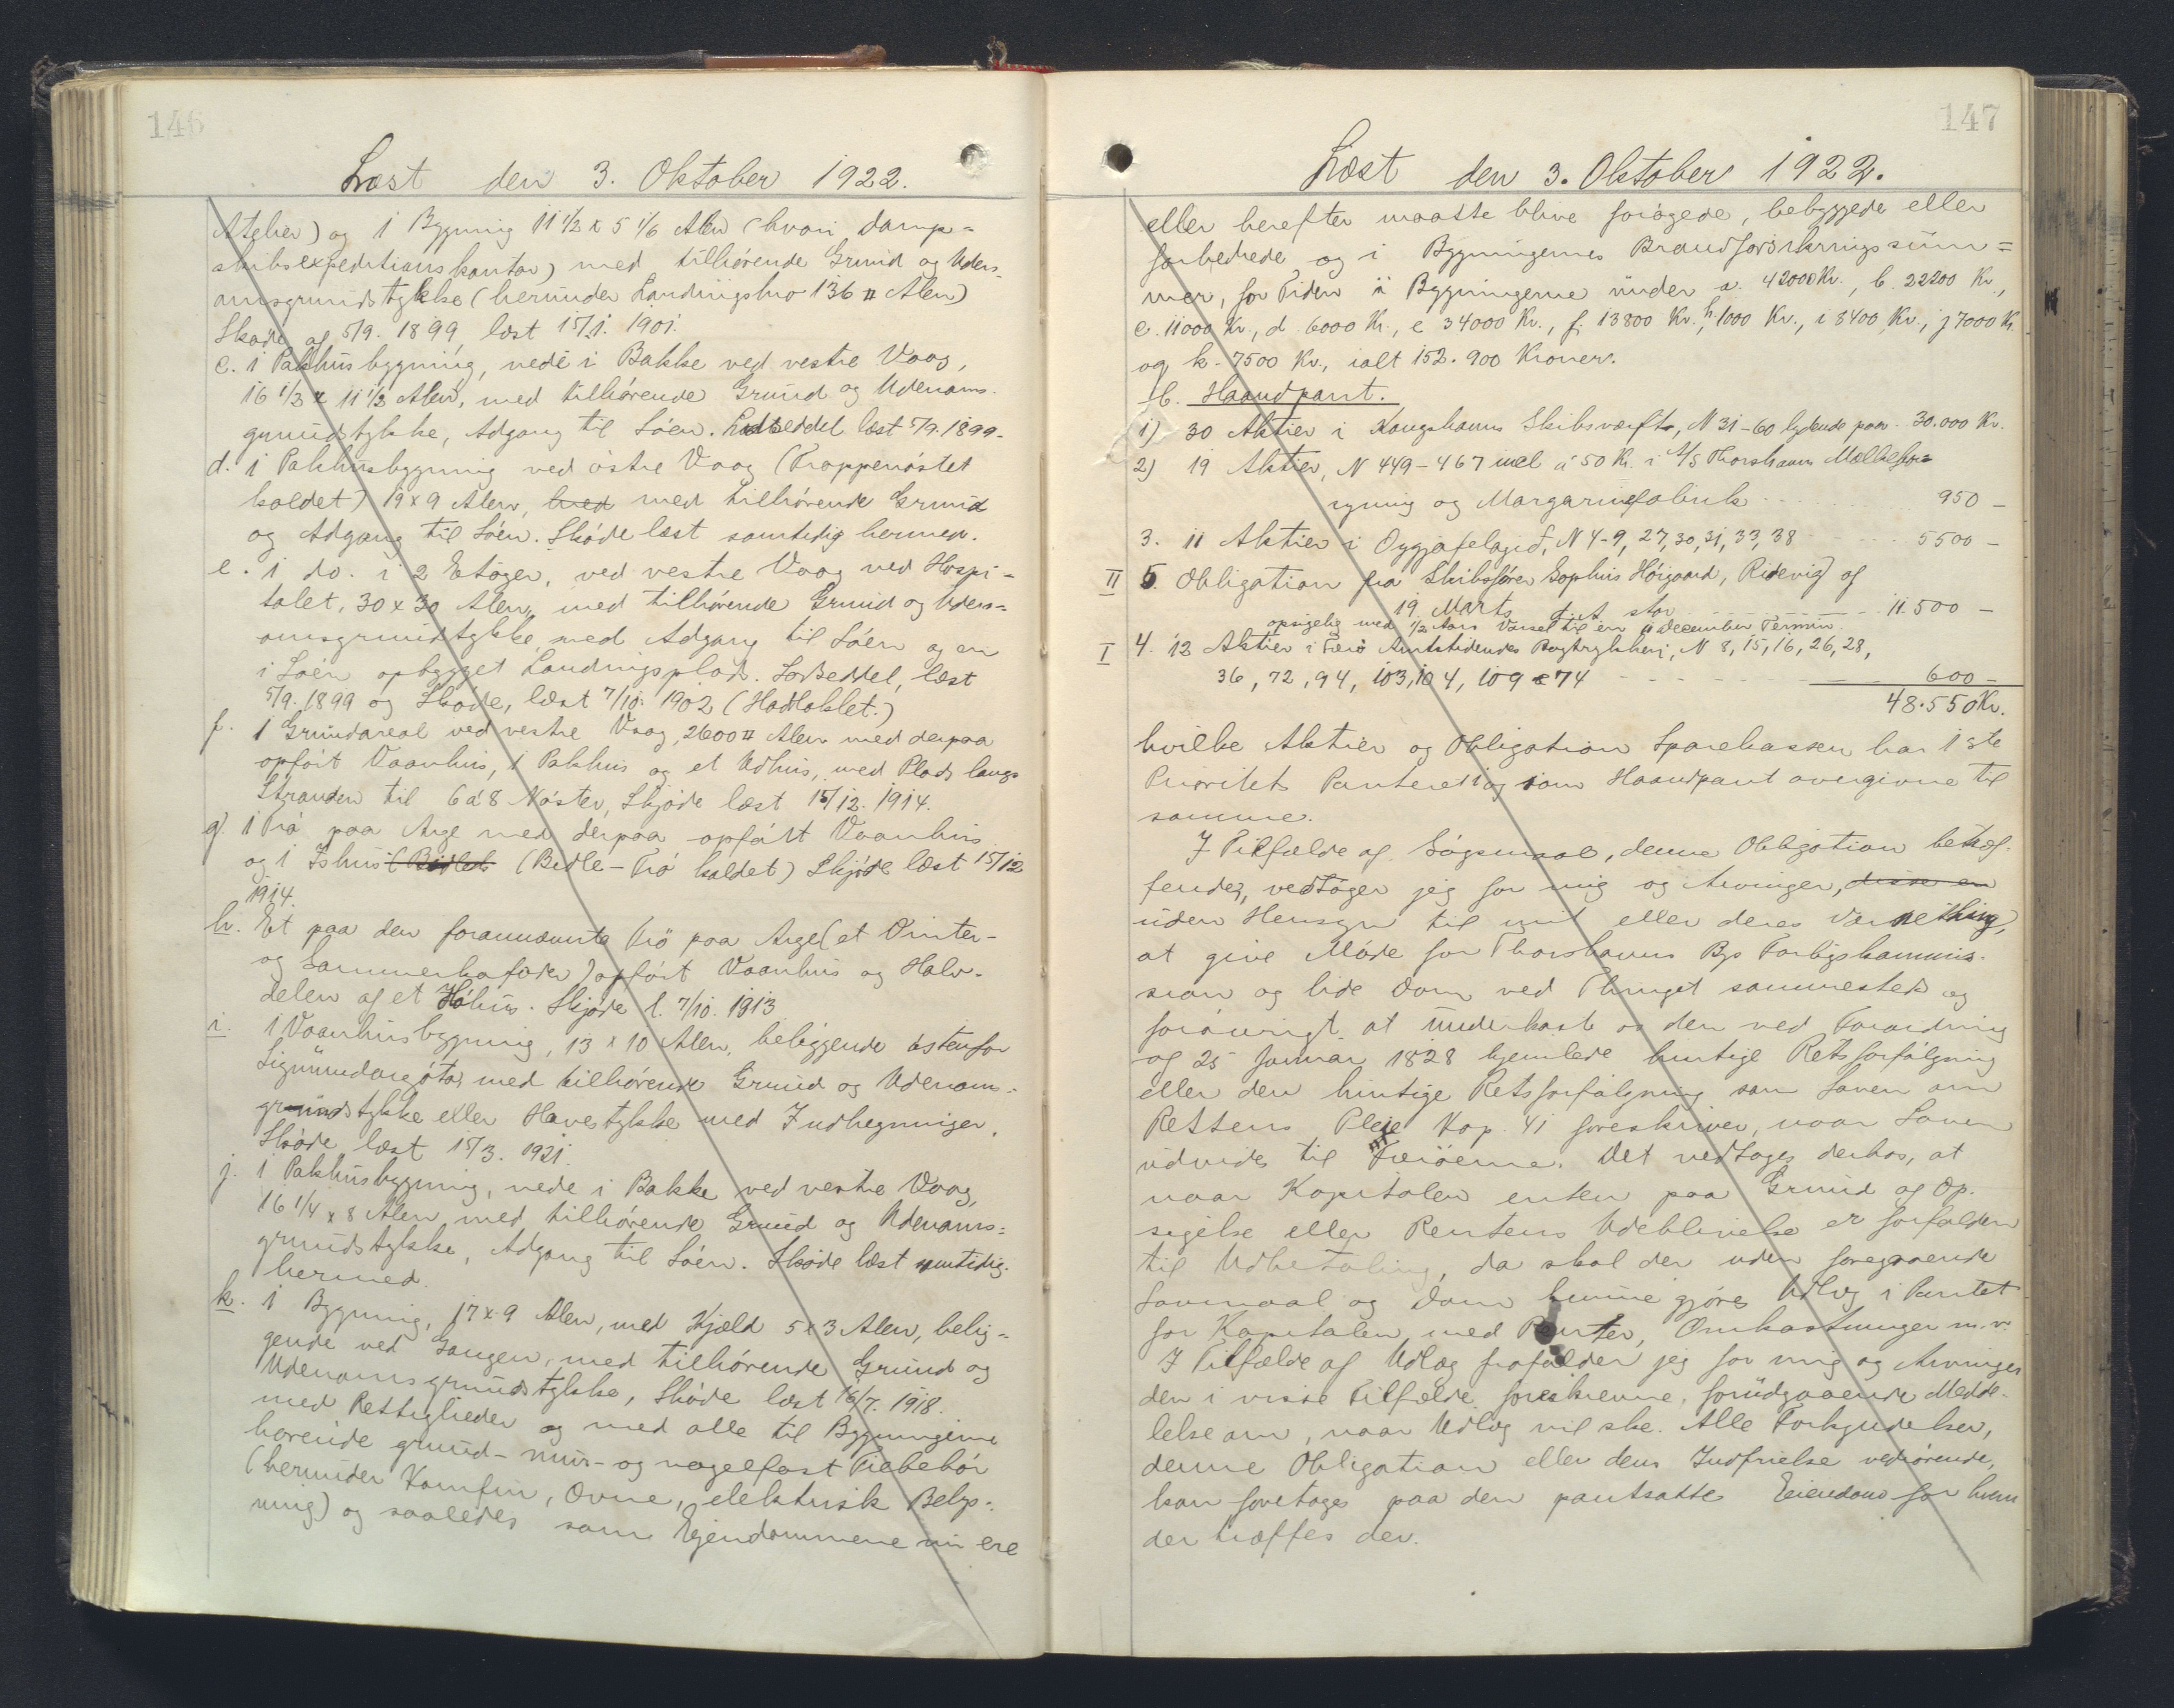 146
Læst den 3. Oktober 1922.
Atelier) og 1 Bygning 11 1/2 x 5 1/6 Alen (hvori Damp=
skibsexpeditionskontor) med tilhørende Grund og Uden-
omsgrundstykke (herunder Landingsbro 136 □ Alen)
Skøde af 5/9. 1899, læst 15/1. 1901.
c. 1 Pakhusbygning, nede i Bakke ved vestre Vaag,
16 1/2 x 11 1/2 Alen, med tilhørende Grund og Udenoms-
grundstykke, Adgang til Søen. Lodseddel læst 5/9. 1899.
d. 1 Pakhusbygning ved østre Vaag (Trappenøstet
kaldet) 19 x 9 Alen, med med tilhørende Grund
og Adgang til Søen. Skøde læst samtidig hermed.
e. 1 do. i 2 Etager, ved vestre Vaag ved Hospi-
talet, 30 x 30 Alen, med tilhørende Grund og Uden=
omsgrundstykke, med Adgang til Søen og en
i Søen opbygget Landingsplads. Lodseddel, læst
5/9. 1899 og Skøde, læst 7/10. 1902 (Hodtoklet.)
f. 1 Grundareal ved vestre Vaag, 2600 □ Alen med derpaa
opført Vaanhus, 1 Pakhus og et Udhus, med Plads langs
Stranden til 6 á 8 Nøster, Skjøde læst 15/12. 1914.
g. 1 Trø paa Arge med derpaa opført Vaanhus
og 1 Ishus (Bedle (Bedle-Trø kaldet) Skjøde læst 15/12
1914.
h. Et paa den forannævnte Trø paa Arge (et Vinter-
og Sommerkofoder) opført Vaanhus og Halv-
delen af et Høhus. Skjøde l. 7/10. 1913
i. 1 Vaanhusbygning, 13 x 10 Alen, beliggende østenfor
Sigmundargøta, med tilhørende Grund og Udenoms=
grundstykke eller Havestykke med Indhegninger,
Skøde læst 15/3. 1921.
j. 1 Pakhusbygning, nede i Bakke ved vestre Vaag,
16 1/4 x 8 Alen med tilhørende Grund og Udenoms=
grundstykke, Adgang til Søen. Skøde læst samtidig
hermed.
k. 1 Bygning, 17 x 9 Alen, med Kjæld 5 x 3 Alen, belig=
gende ved Gangen, med tilhørende Grund og
Udenomsgrundstykke, Skøde læst 16/7. 1918.
med Rettigheder og med alle til Bygningerne
hørende grund- mur- og nagelfast Tilbehør
(herunder Komfur, Ovne, elektrisk Belys=
ning) og saaledes som Ejendommene nu ere
147
Læst den 3. Oktober 1922.
eller herefter maatte blive forøgede, bebyggede eller
forbedrede og i Bygningernes Brandforsikringssum=
mer, for Tiden á Bygningerne under a. 42000 Kr., b. 22200 Kr.,
c. 11000 Kr., d. 6000 Kr., e 34000 Kr., f. 13800 Kr., h. 1000 Kr., i 8400 Kr., j 7000 Kr.
og k. 7500 Kr., ialt 152.900 Kroner.
b. Haandpant.
1) 30 Aktier i Kongshavns Skibsværft, N 31-60 lydende paa 30.000 Kr.
2) 19 Aktier, N 449-467 incl. á 50 Kr. i A/S Thorshavns Mælkefor=
syning og Margarinefabrik 950 -
3. 11 Aktier i Oyggjafelagið, N 4-9, 27, 30, 31, 33, 38 5500 -
II 5. Obligation fra Skibsfører Sophus Højgaard, Ridevig af
19 Marts stor 11.500 -
opsigelig med 1/2 Aars Varsel til en 11 December Termin.
I 4. 12 Aktier i Færø Amtstidendes Bogtrykkeri, N 8, 15, 16, 26, 28,
36, 72, 94, 103, 104, 109 & 74 600 -
48.550 Kr.
hvilke Aktier og Obligation Sparekassen har 1ste
Prioritets Panteret i og som Haandpant overgivne til
samme.
I Tilfælde af Søgsmaal, denne Obligation betræf-
fende, vedtager jeg for mig og Arvinger, disse en
uden Hensyn til mit eller deres Værnething,
at give Møde for Thorshavns Bys Forligskommis-
sion og lide Dom ved Thinget sammesteds og
forøvrigt at underkaste os den ved Forordning
af 25 Januar 1828 hjemlede hurtige Retsforfølgning
eller den hurtige Retsforfølgning som Loven om
Rettens Pleje Kap. 41 foreskriver, naar Loven
udvides til Færøerne. Det vedtages derhos, at
naar Kapitalen enten paa Grund af Op-
sigelse eller Rentens Udeblivelse er forfalden
til Udbetaling, da skal der uden foregaaende
Lovmaal og Dom kunne gjøres Udlæg i Pantet
for Kapitalen, med Renter, Omkostninger m.v.
I Tilfælde af Udlæg frafalder jeg for mig og Arvinger
den i visse Tilfælde foreskrevne, forudgaaende Medde-
lelse om, naar Udlæg vil ske. Alle Forkyndelser,
denne Obligation eller dens Indfrielse vedrørende,
kan foretages paa den pantsatte Eiendom for hvem
der træffes der.